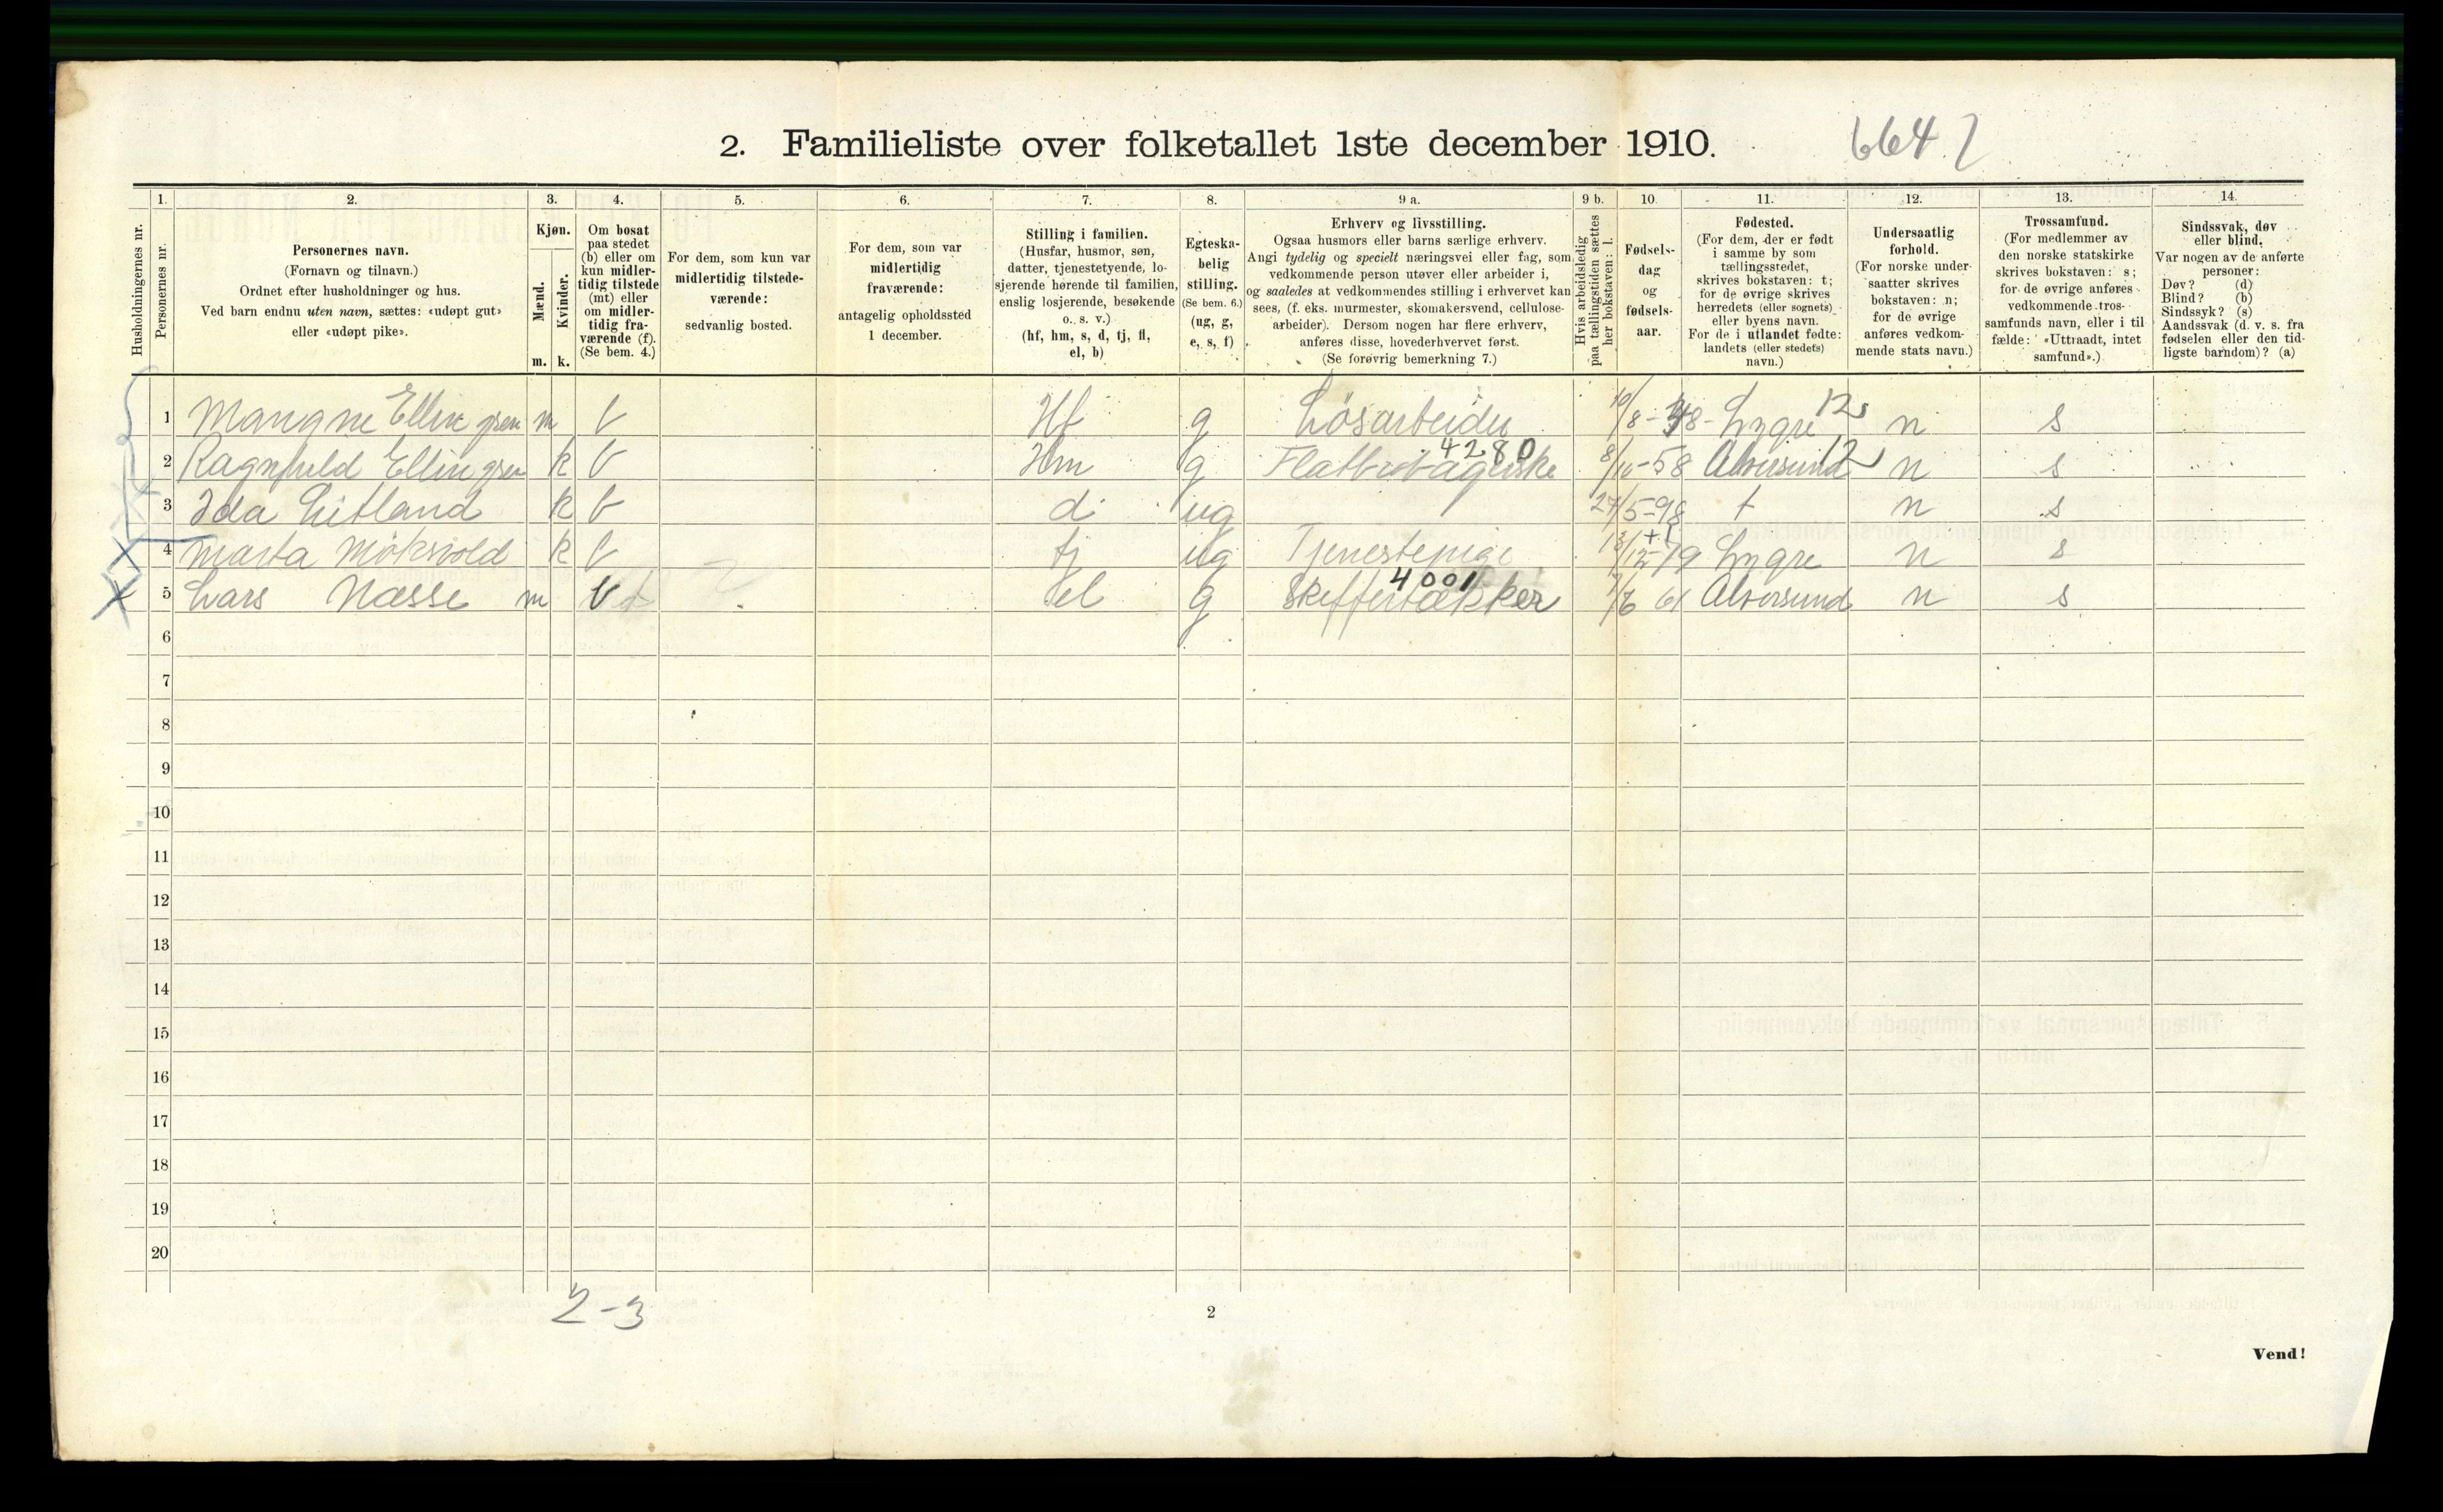 2. Familieliste over folketallet 1ste december 1910.
664
1. 2. 3. 4. 5. 6. 7. 8. 9 a. 9 b. 10. 11. 12. 13. 14.
Husholdningernes nr.
Personernes nr.
Personernes navn.
(Fornavn og tilnavn.)
Ordnet efter husholdninger og hus.
Ved barn endnu uten navn, sættes: «udøpt gut»
eller «udøpt pike».
Kjøn.
Mænd.
Kvinder.
m. k.
Om bosat
paa stedet
(b) eller om
kun midler-
tidig tilstede
(mt) eller
om midler-
tidig fra-
værende (f).
(Se bem. 4.)
For dem, som kun var
midlertidig tilstede-
værende:
sedvanlig bosted.
For dem, som var
midlertidig
fraværende:
antagelig opholdssted
1 december.
Stilling i familien.
(Husfar, husmor, søn,
datter, tjenestetyende, lo-
sjerende hørende til familien,
enslig losjerende, besøkende
o. s. v.)
(hf, hm, s, d, tj, fl,
el, b)
Egteska-
belig
stilling.
(Se bem. 6.)
(ug, g,
e, s, f)
Erhverv og livsstilling.
Ogsaa husmors eller barns særlige erhverv.
Angi tydelig og specielt næringsvei eller fag, som
vedkommende person utøver eller arbeider i,
og saaledes at vedkommendes stilling i erhvervet kan
sees, (f. eks. murmester, skomakersvend, cellulose-
arbeider). Dersom nogen har flere erhverv,
anføres disse, hovederhvervet først.
(Se forøvrig bemerkning 7.)
Hvis arbeidsledig
paa tællingstiden sættes
her bokstaven: l.
Fødsels-
dag
og
fødsels-
aar.
Fødested.
(For dem, der er født
i samme by som
tællingsstedet,
skrives bokstaven: t;
for de øvrige skrives
herredets (eller sognets)
eller byens navn.
For de i utlandet fødte:
landets (eller stedets)
navn.)
Undersaatlig
forhold.
(For norske under-
saatter skrives
bokstaven: n;
for de øvrige
anføres vedkom-
mende stats navn.)
Trossamfund.
(For medlemmer av
den norske statskirke
skrives bokstaven: s;
for de øvrige anføres
vedkommende tros-
samfunds navn, eller i til-
fælde: «Uttraadt, intet
samfund».)
Sindssvak, døv
eller blind.
Var nogen av de anførte
personer:
Døv? (d)
Blind? (b)
Sindssyk? (s)
Aandssvak (d. v. s. fra
fødselen eller den tid-
ligste barndom)? (a)
1 Mangne Ellingsen m b Hf g Løsarbeider 10/8-48 Lygre 12 n s
4280
2 Ragnhild Ellingsen k b Hm g Flatbrødbagerske 8/10-58 Alversund 12 n s
3 Ida Litland k b d ug 27/5-98 t n s
4 Marta k b tj ug Tjenestepige 13/12-79 Lygre n s
4001
5 Lars Næsse m b el g Skiffertækker 7/6 61 Alversund n s
g
6
7
8
9
10
11
12
13
14
15
16
17
18
19
20
2-3
2
Vend!